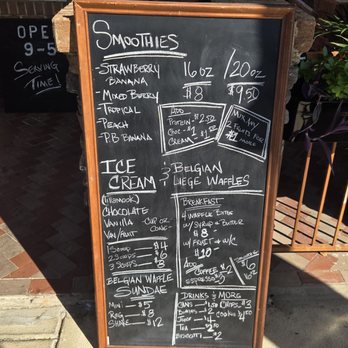 OPE
9-5
SERVING
TIME!
SMOOTHIES
-STRAWBERRY
BANANA
-MIXED BERRY
-TROPICAL
-PEACH
-P.B BANANA
16oz /20oz
$8 $9.50
ADD
PROTEIN $2.50
CHOC - $1
CREAM - $1.50
MIX ANY
2 FRUITS
$1
ICE
CREAM & BELGIAN
LIEGE WAFFLES
TILLAMOOK
CHOCOLATE
VANILLA
VAN/FRUIT
CUP OR
CONE
1 SCOOP $4
2 SCOOPS $6
3 SCOOPS $8
BELGIAN WAFFLE
SUNDAE
MINI - $5
REG - $8
SHARE - $12
BREAKFAST
W/ SYRUP & BUTTER
$8
W/ FRUIT & W/C
$10
ADD
COFFEE $2
DRINKS & MORE
CANS CHIPS $3
COOKIE
JUICE
TEA
BISCOTTI $2